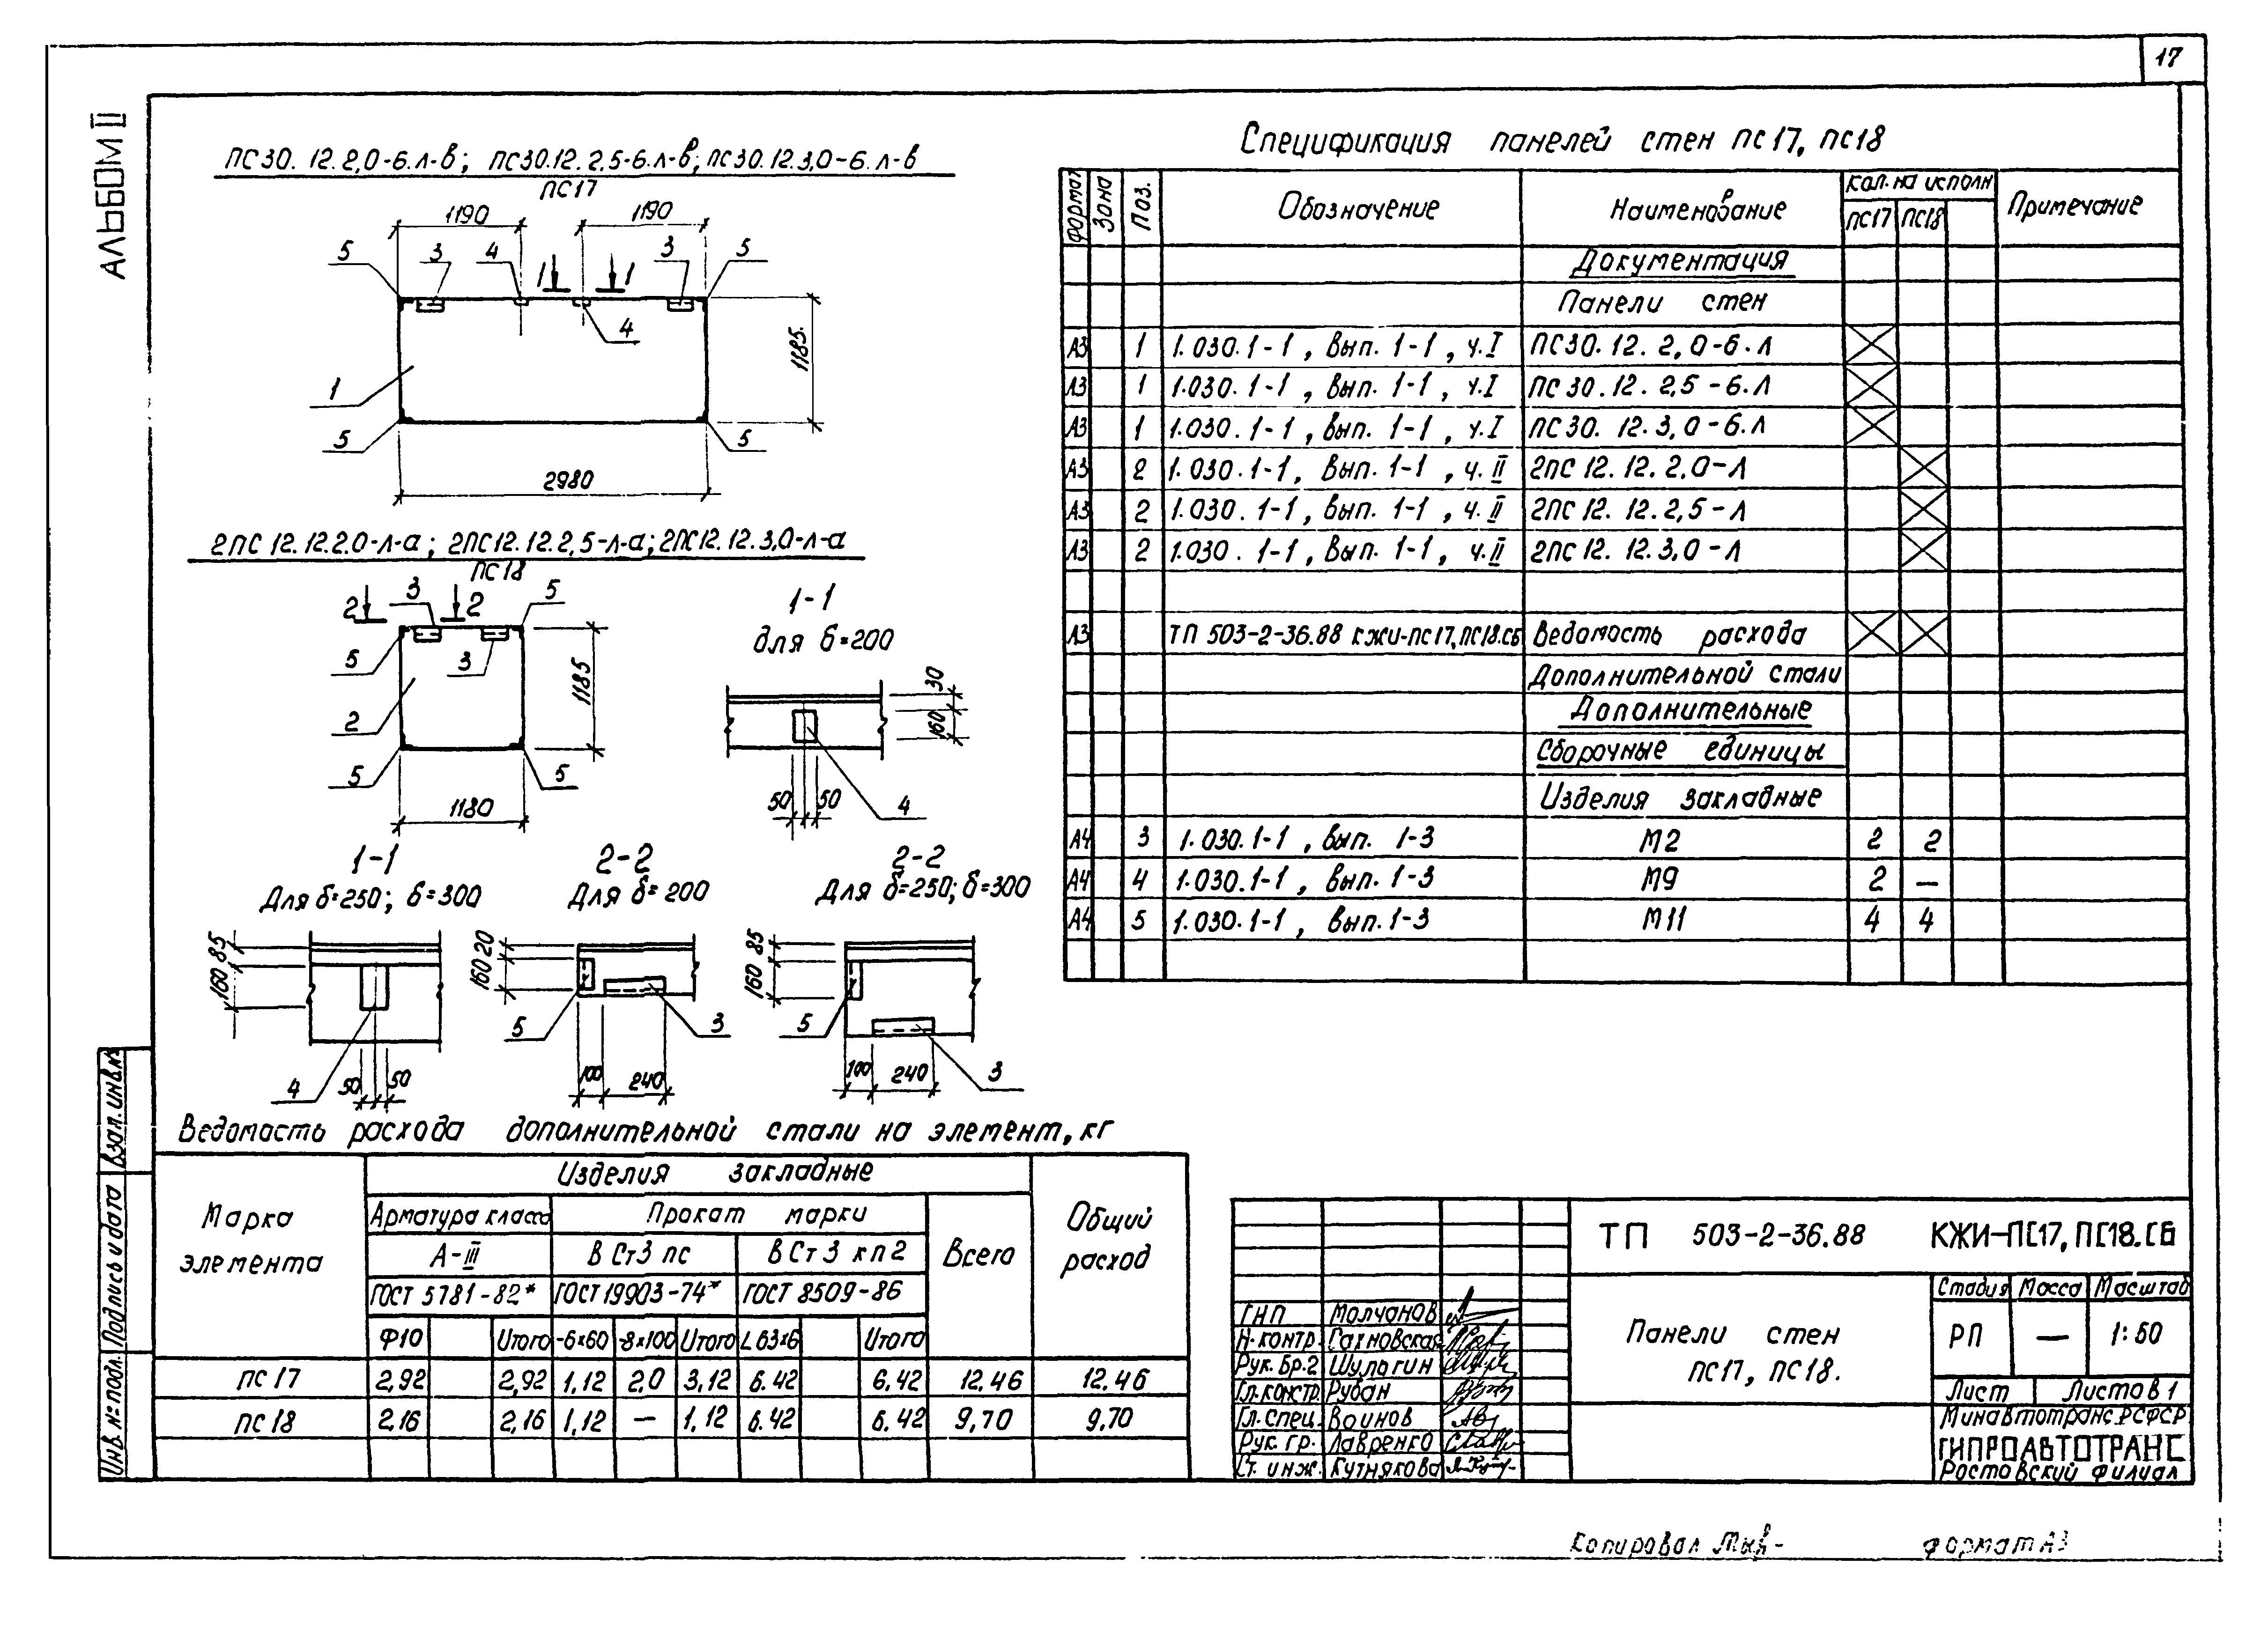 17
АЛЬБОМ II
ПС30.12.2,0-6.Л-в; ПС30.12.2,5-6.Л-в; ПС30.12.3,0-6.Л-в
ПС17
1190 1190
5 3 4 1 1 3 5
4
1185
1
5 5
2980
2ПС12.12.2.0-Л-а; 2ПС12.12.2,5-Л-а; 2ПС12.12.3,0-Л-а
ПС18
2 3 2 5
5 3
1185
2
5 5
1180
1-1
для б=200
30
160
50 50 4
1-1
Для б=250; б=300
85
160
4 50 50
2-2
Для б=200
20
160
5 3
100 240
2-2
Для б=250; б=300
85
160
5
100 240 3
Спецификация панелей стен ПС17, ПС18
Формат Зона Поз. Обозначение Наименование Кол. на исполн Примечание
ПС17 ПС18
Документация
Панели стен
А3 1 1.030.1-1, вып. 1-1, ч.I ПС30.12.2,0-6.Л
А3 1 1.030.1-1, вып. 1-1, ч.I ПС30.12.2,5-6.Л
А3 1 1.030.1-1, вып. 1-1, ч.I ПС30.12.3,0-6.Л
А3 2 1.030.1-1, вып. 1-1, ч.II 2ПС12.12.2,0-Л
А3 2 1.030.1-1, вып. 1-1, ч.II 2ПС12.12.2,5-Л
А3 2 1.030.1-1, вып. 1-1, ч.II 2ПС12.12.3,0-Л
А3 ТП 503-2-36.88 КЖИ-ПС17,ПС18.СБ Ведомость расхода
Дополнительной стали
Дополнительные
Сборочные единицы
Изделия закладные
А4 3 1.030.1-1, вып. 1-3 М2 2 2
А4 4 1.030.1-1, вып. 1-3 М9 2 —
А4 5 1.030.1-1, вып. 1-3 М11 4 4
Ведомость расхода дополнительной стали на элемент, кг
Марка элемента
Изделия закладные
Общий расход
Арматура класса Прокат марки Всего
А-III ВСт3пс ВСт3кп2
ГОСТ 5781-82* ГОСТ 19903-74* ГОСТ 8509-86
Ф10 Итого -6x60 -8x100 Итого L63x6 Итого
ПС17 2,92 2,92 1,12 2,0 3,12 6.42 6,42 12.46 12.46
ПС18 2,16 2,16 1,12 — 1,12 6.42 6.42 9,70 9,70
Взал. инв.№
Подпись и дата
Инв. № подл.
ТП 503-2-36.88 КЖИ-ПС17, ПС18.СБ
Панели стен
ПС17, ПС18.
Стадия Масса Масштаб
РП — 1:50
Лист Листов 1
Минавтотранс.РСФСР
ГИПРОАВТОТРАНС
Ростовский филиал
ГИП Молчанов
Н.контр. Сахновская
Рук. бр.2 Шульгин
Гл.констр. Рубан
Гл.спец. Воинов
Рук. гр. Лавренко
Ст. инж. Кутнякова
Копировал формат А3